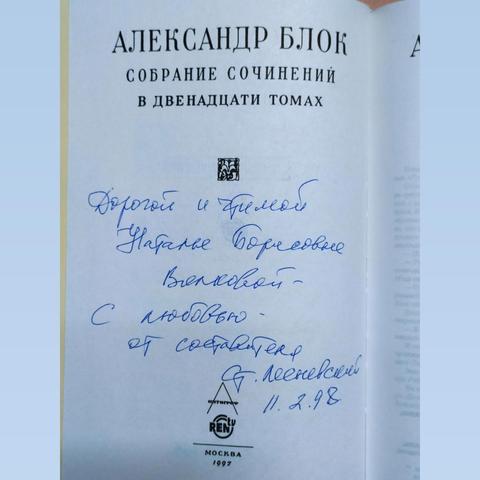 АЛЕКСАНДР БЛОК
СОБРАНИЕ СОЧИНЕНИЙ
В ДВЕНАДЦАТИ ТОМАХ
Дорогой и
Наталье Борисовне
Волковой –
С любовью –
от составителя
Ст. Лесневский
11.2.98
REN TV
МОСКВА
1997
А